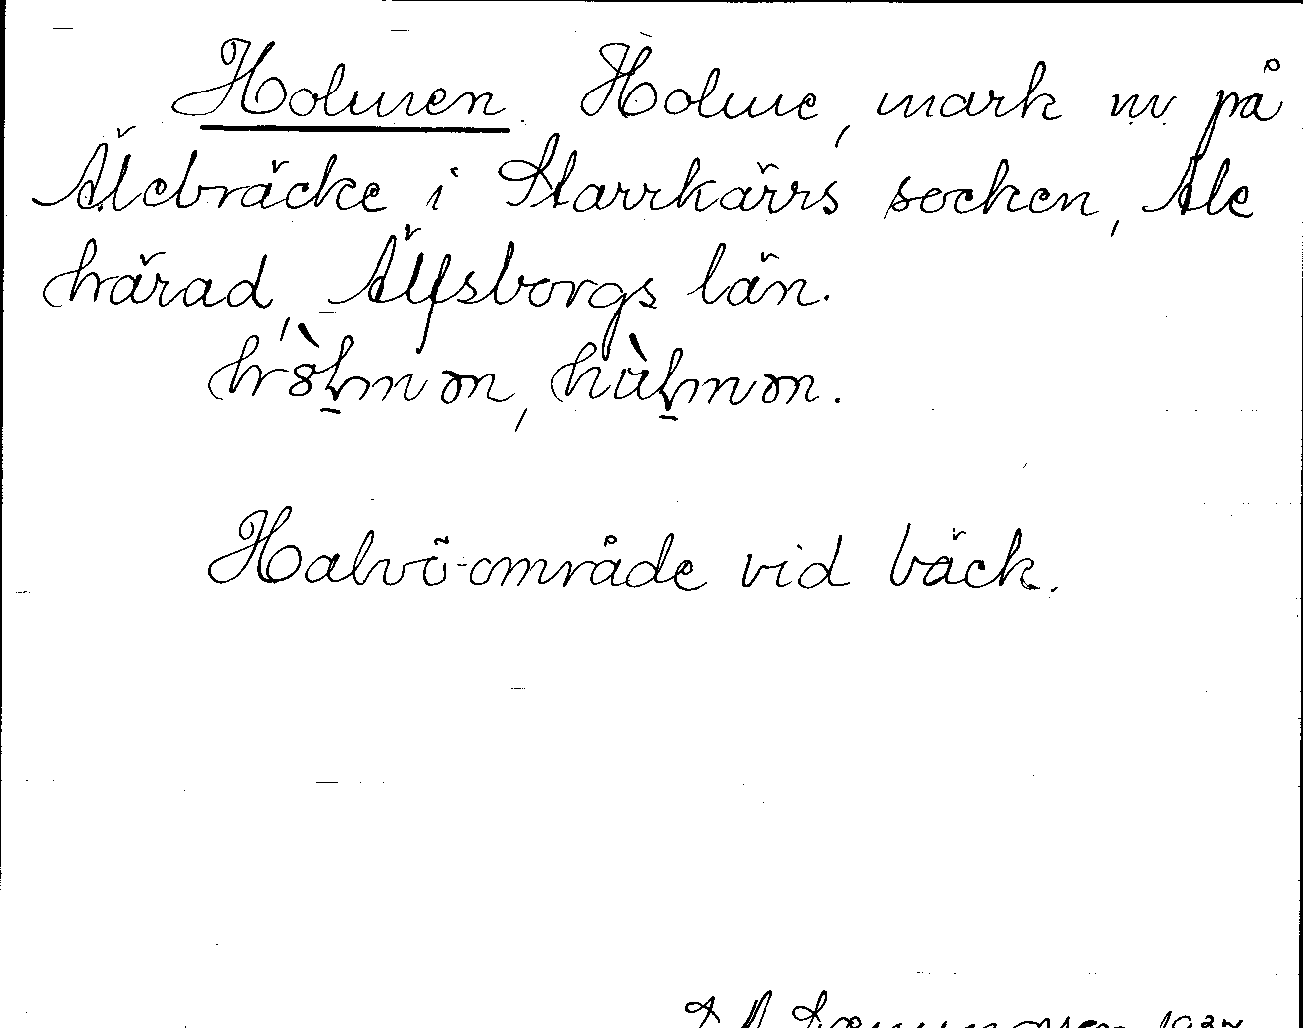 Holmen. Holme, mark nv på
Älebräcke i Starrkärrs socken, Ale
härad, Älfsborgs län.
Halvö-område vid bäck.